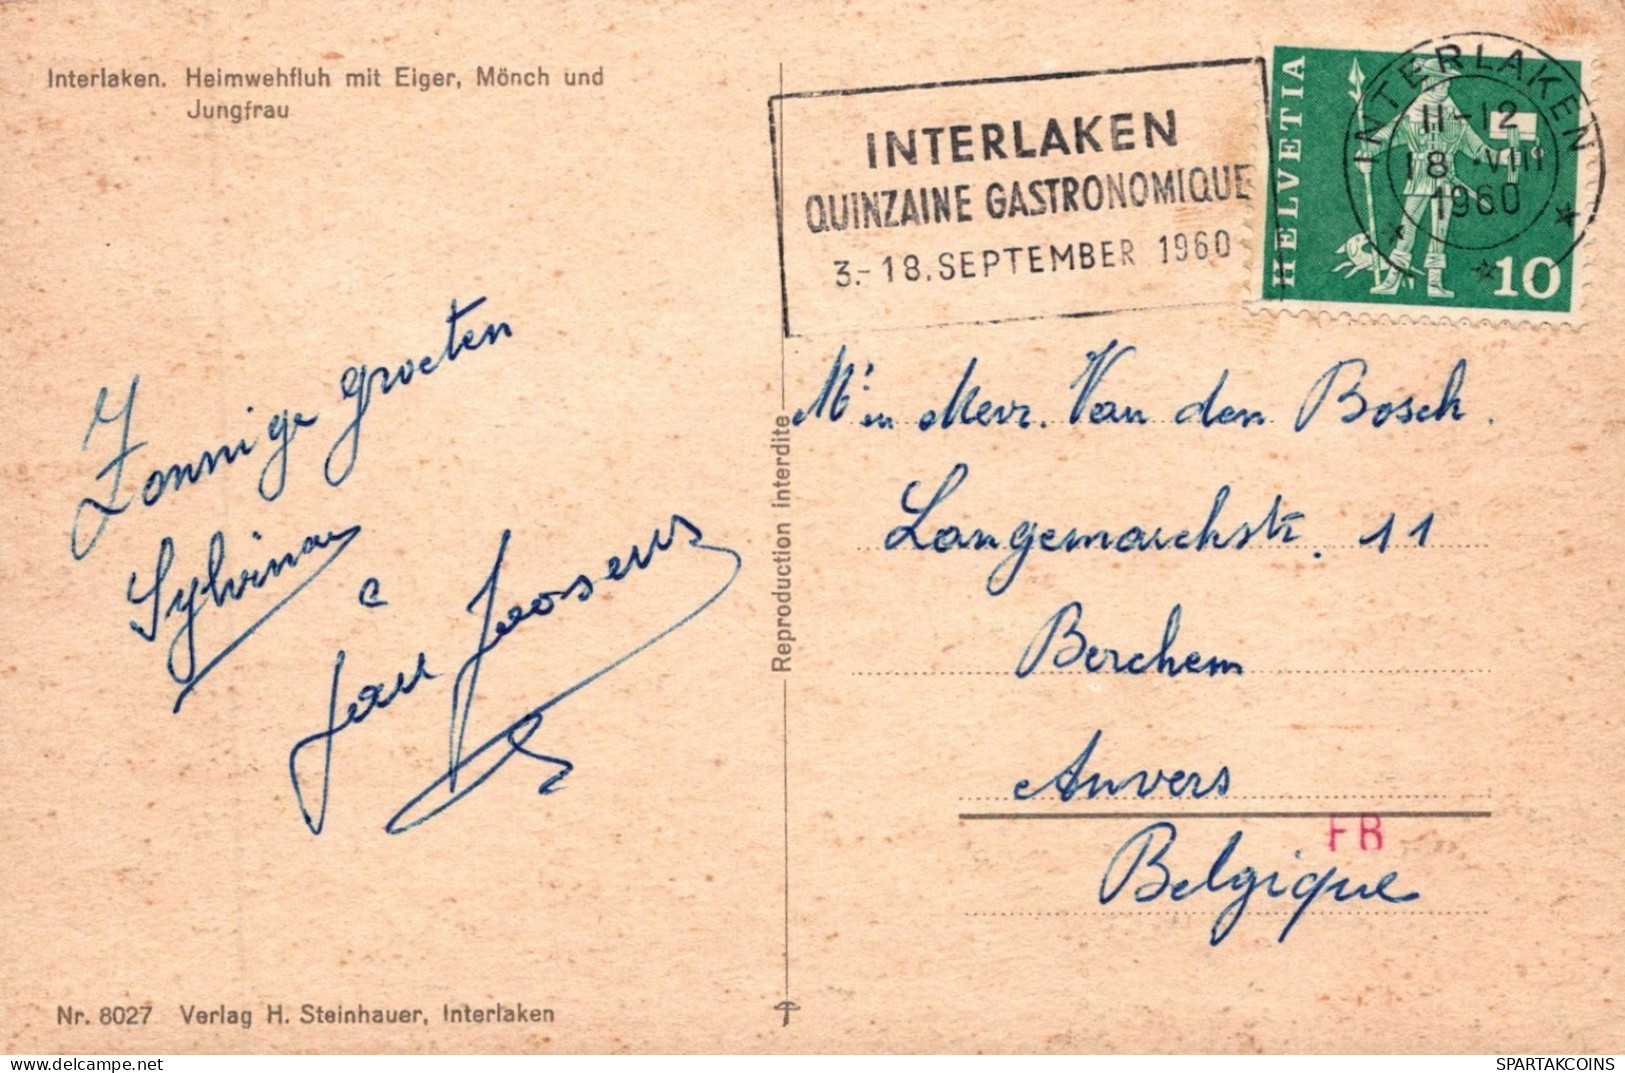 Interlaken. Heimwehfluh mit Eiger, Mönch und
Jungfrau
INTERLAKEN
QUINZAINE GASTRONOMIQUE
3.-18. SEPTEMBER 1960
HELVETIA
10
INTERLAKEN
11-12
18. VIII
1960
Zonnige groeten
Sylvina
e
Jan Joosens
Reproduction interdite
Mr en Mevr. Van den Bosch.
Langemarckstr. 11
Berchem
Anvers
FB
Belgique
Nr. 8027 Verlag H. Steinhauer, Interlaken
delcampe.net
SPARTAKCOINS